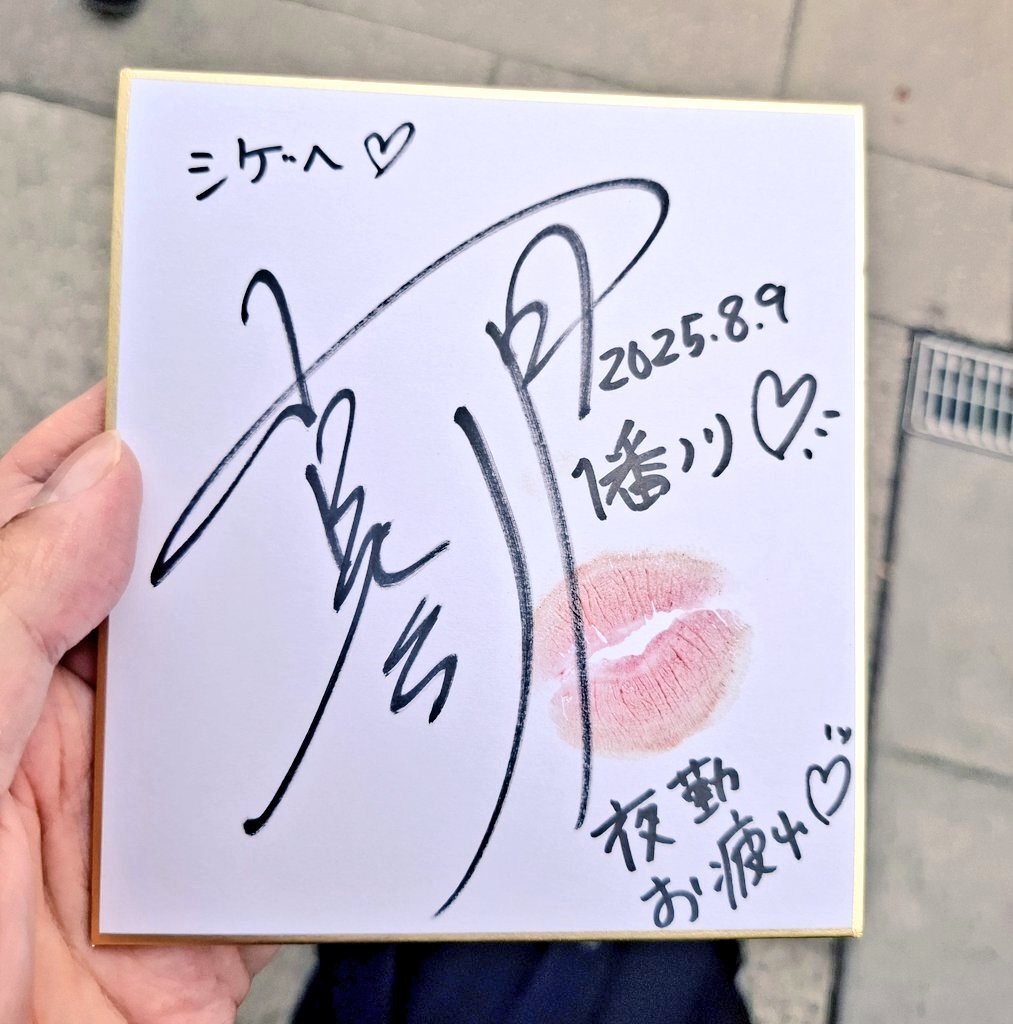 シゲへ♡
2025.8.9
幡川♡
夜勤
お疲れ♡